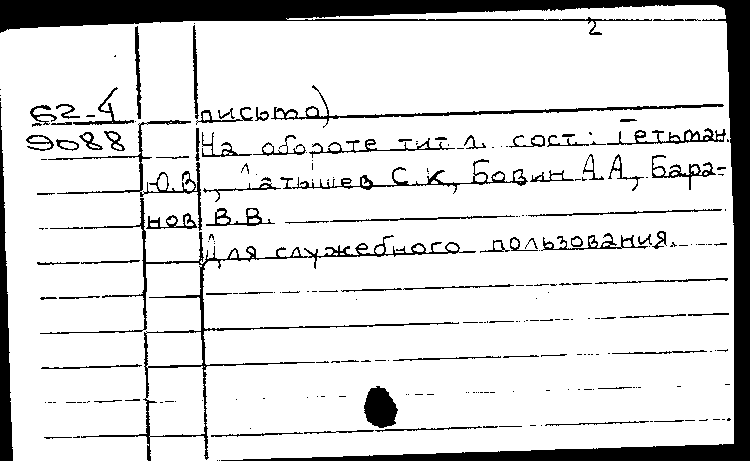 2
62-4 письмо).
9088 На обороте тит. л. сост.: Гетьман
Ю.В., Латышев С.К., Бовин А.А., Бара-
нов В.В.
Для служебного пользования.